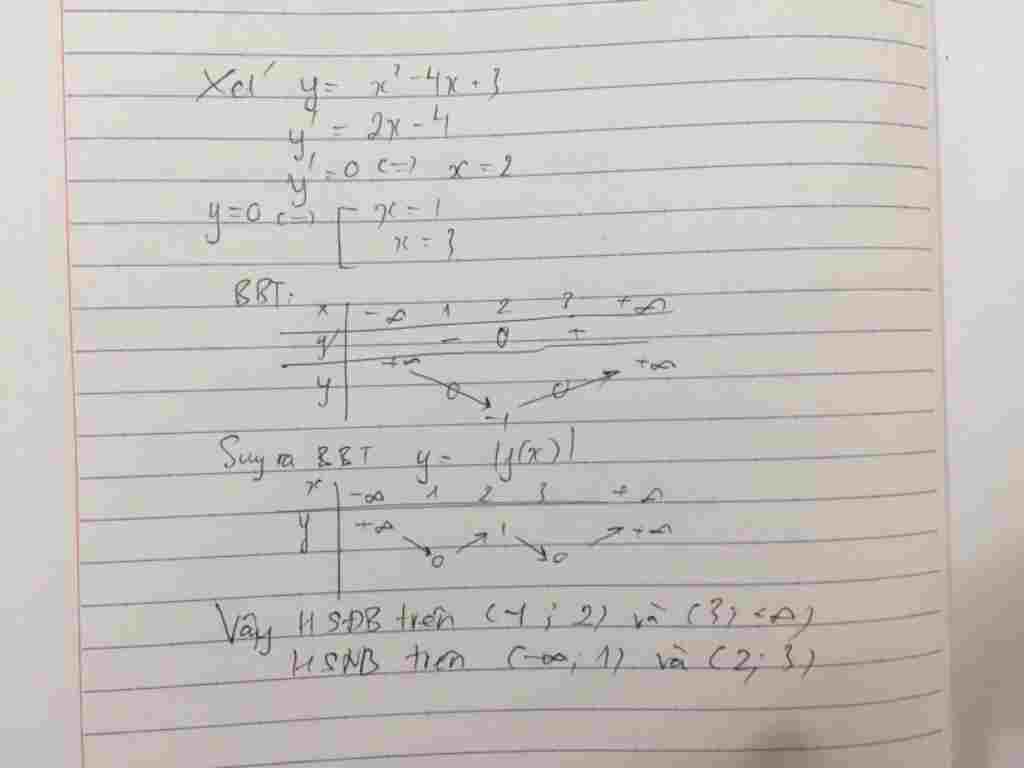 Xét y = x² - 4x + 3
y' = 2x - 4
y' = 0 (=) x = 2
y = 0 (=) [ x = 1
x = 3
BBT:
x -∞ 1 2 3 +∞
y' - 0 +
y +∞ 0 -1 0 +∞
Suy ra BBT y = |y(x)|
x -∞ 1 2 3 +∞
y +∞ 0 1 0 +∞
Vậy HSĐB trên (1; 2) và (3; +∞)
HSNB trên (-∞; 1) và (2; 3)